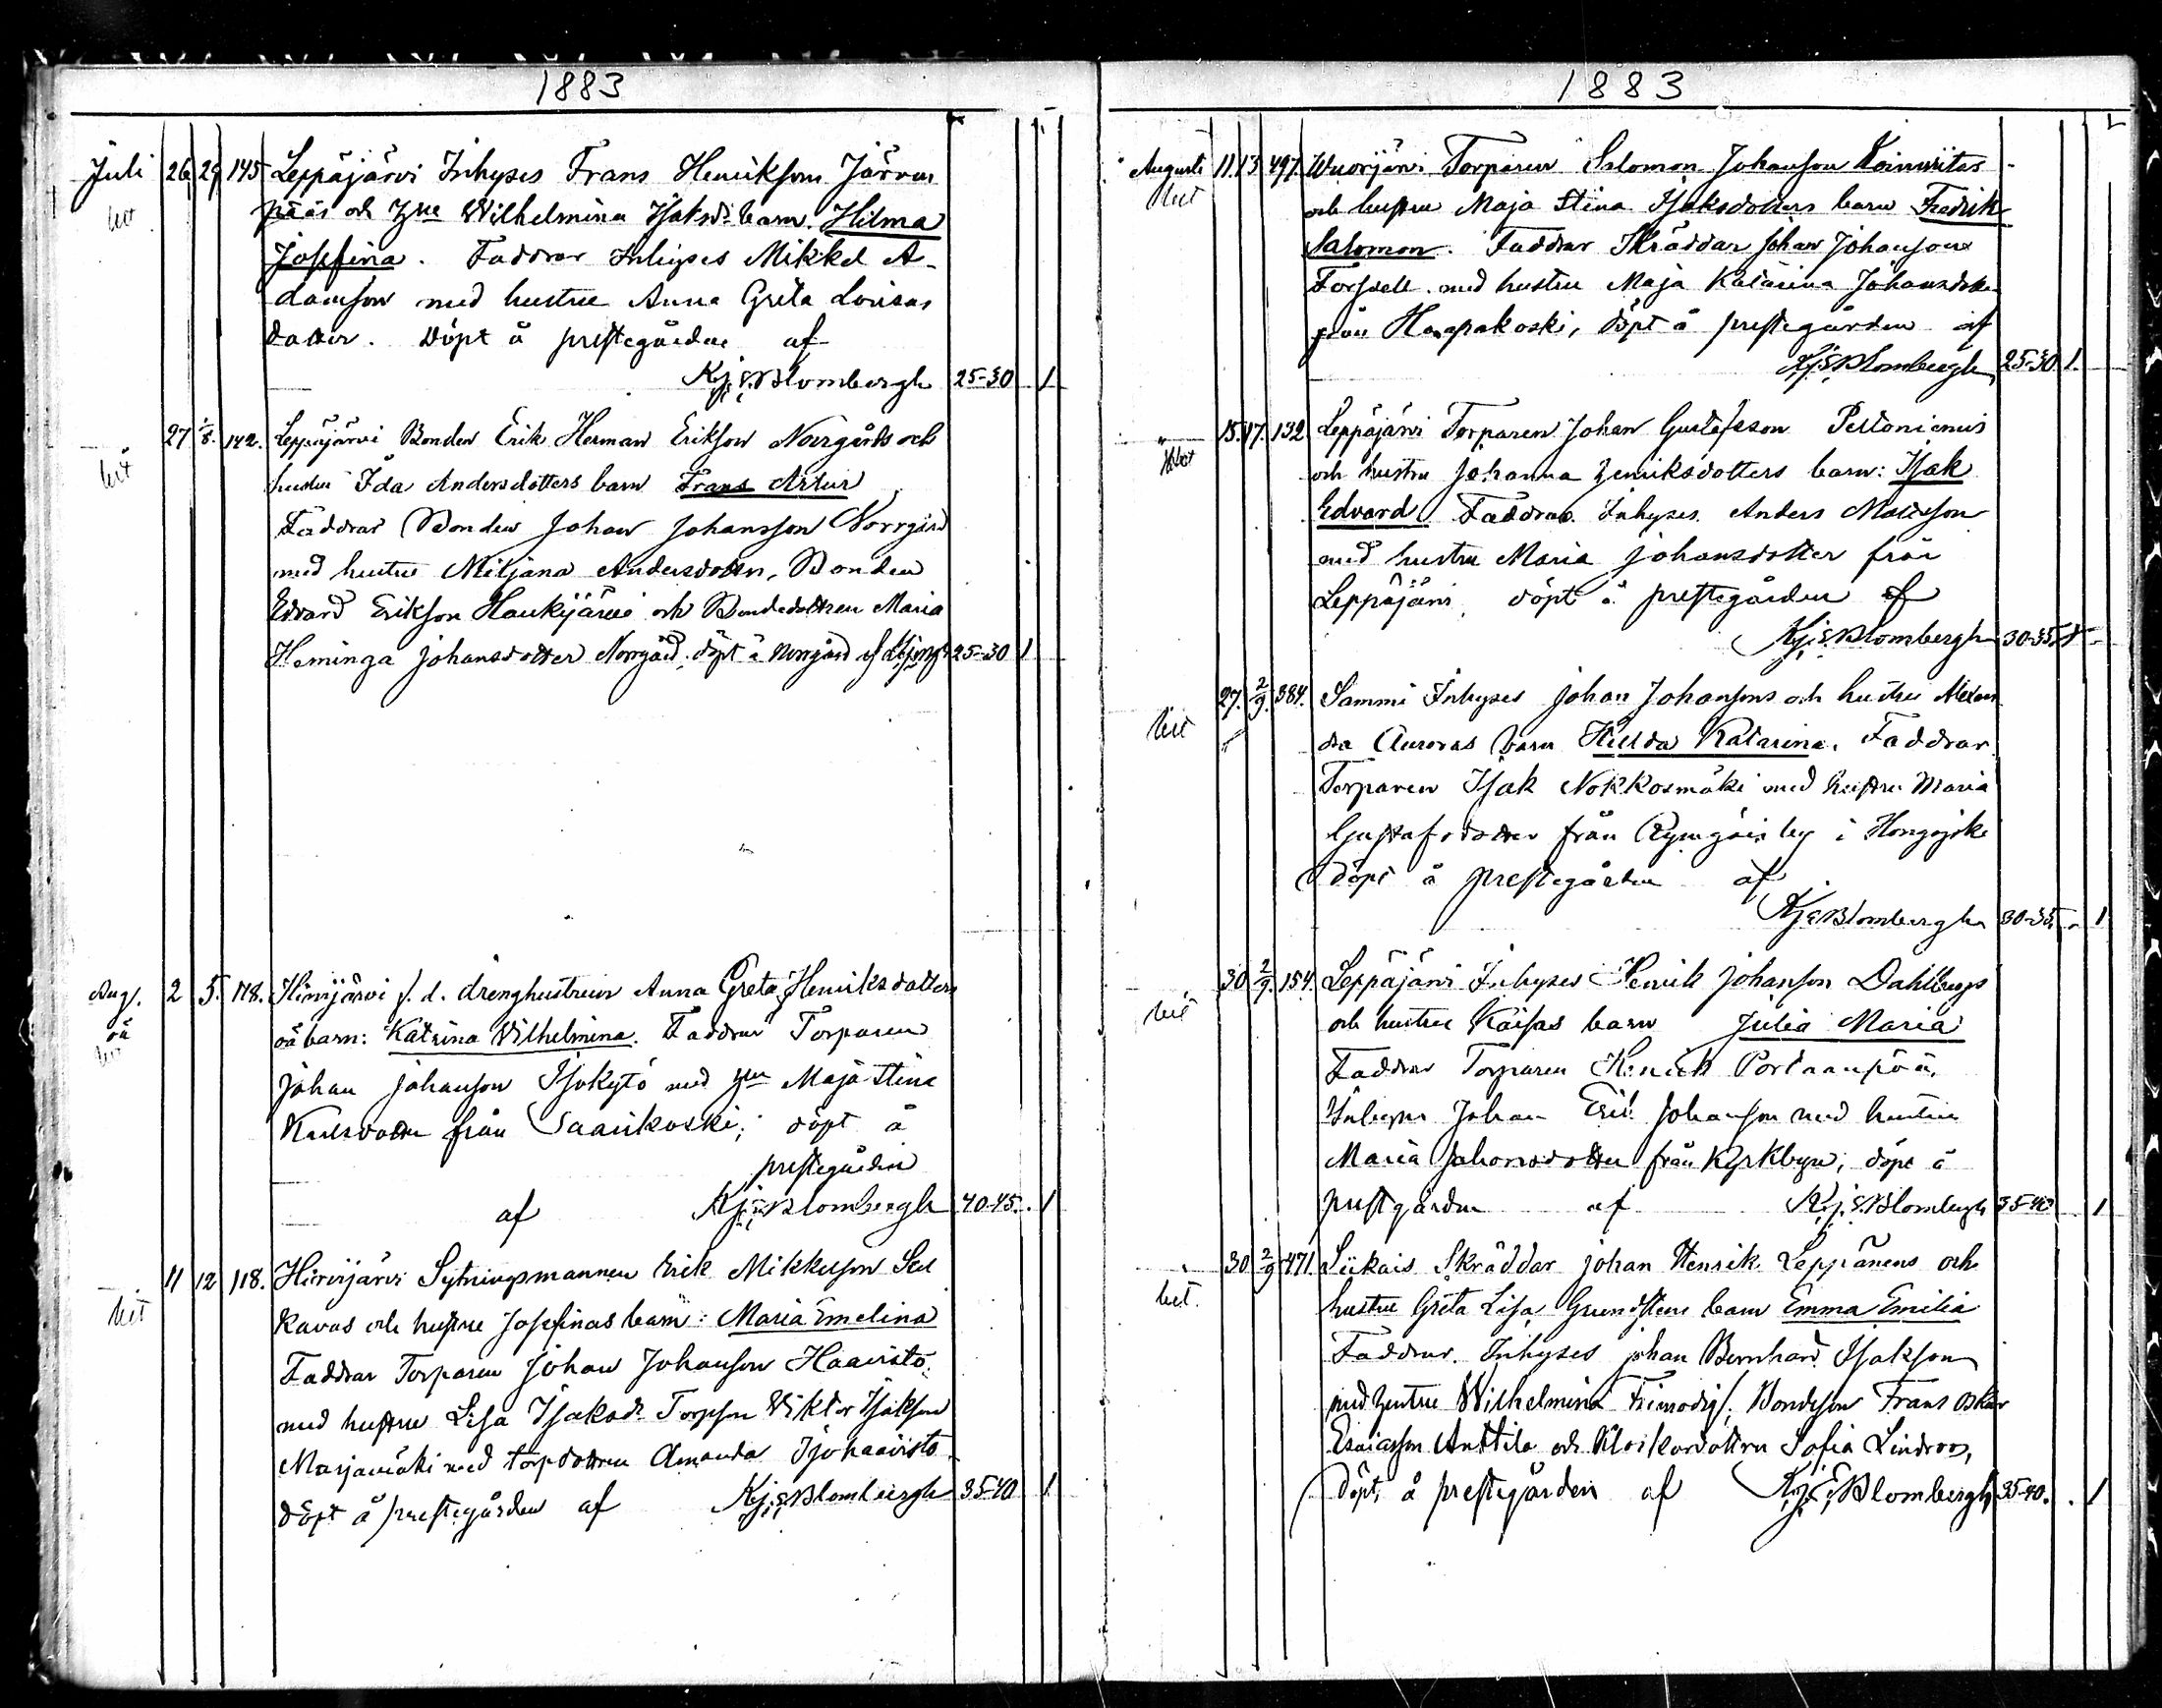 1883
Juli 26 29 145 Leppäjärvi Inhyses Frans Henriksons Järven
bet pääs och hru Wilhelmina Isaksds barn. Hilma
Josefina. Faddrar Inhyses Mikkel A-
damson med hustru Anna Greta Lovisas
dotter. Döpt å prestegården af
Kj: E. Blombergh 25-30 1
27 1/8. 142. Leppäjärvi Bonden Erik Herman Erikson Norrgårds och
bet hustru Ida Andersdotters barn Frans Artur
Faddrar Bonden Johan Johansson Norrgård
med hustru Miljana Andersdotter, Bonden
Edvard Erikson Haukijärvi och Bondedottren Maria
Heminga Johansdotter Norrgård, döpt å Norrgård af 25-30 1
Aug. 2 5. 118. Hirvijärvi f. d. drenghustrun Anna Greta Henriksdotters
oä oä barn: Katrina Wilhelmina. Faddrar Torparen
bet
Johan Johanson Isokytö med hru Maja Stina
Karlsdotter från Saarikoski; döpt å
prestegården
af Kj: E. Blombergh 40-45. 1
11 12 118. Hirvijärvi Sytningsmannen Erik Mikkelson
bet kavas och hustru Josefinas barn: Maria Emelina
Faddrar Torparen Johan Johanson Haavisto
med hustru Lisa Isaksdr Torpson Viktor Isakson
Marjamäki med torpdottren Amanda Isohaavisto
döpt å prestegården af Kj: E. Blombergh 35-40 1
1883
Augusti 11 13 497. Wuorijärvi Torparen Salomon Johanson
bet och hustru Maja Stina Isaksdotters barn Fredrik
Salomon. Faddrar Skräddar Johan Johanson
Forssell med hustru Maja Katarina Johansdotter
från Haapakoski, döpt å prestegården af
Kj: E. Blombergh 25-30 1.
15. 17. 132 Leppäjärvi Torparen Johan Gustafsson Peltoniemis
bet och hustru Johanna Henriksdotters barn: Isak
Edvard Faddrar. Inhyses. Anders Matsson
med hustru Maria Johansdotter från
Leppäjärvi, döpt å prestegården af
Kj: E. Blombergh 30-35 1
27. 2/9. 384. Sammi Inhyses Johan Johansons och hustru Alexan
bet dra Auroras barn Hilda Katarina. Faddrar
Torparen Isak Nokkosmäki med hustru Maria
Gustafsdotter från by i Hongojoki
döpt å prestegården af
Kj: E. Blombergh 30-35. 1
30 2/9. 154. Leppäjärvi Inhyses Henrik Johanson Dahlbergs
bet och hustru Kaisas barn Julia Maria
Faddrar Torparen Henrik Portaanpää,
Inhyses Johan Erik Johanson med hustru
Maria Johansdotter från Kyrkbyn, döpt å
prestgården af Kj: E. Blombergh 35-40 1
30 2/9 471. Liikais Skräddar Johan Henrik Leppänens och
bet. hustru Greta Lisa Grundstens barn Emma Emilia
Faddrar. Inhyses Johan Bernhard Isakson
med hustru Wilhelmina Frimodig; Bondeson Frans Oskar
Esaiasson Anttila och Klockardottren Sofia Lindroos,
döpt å prestegården af Kj: E. Blombergh 35-40. 1